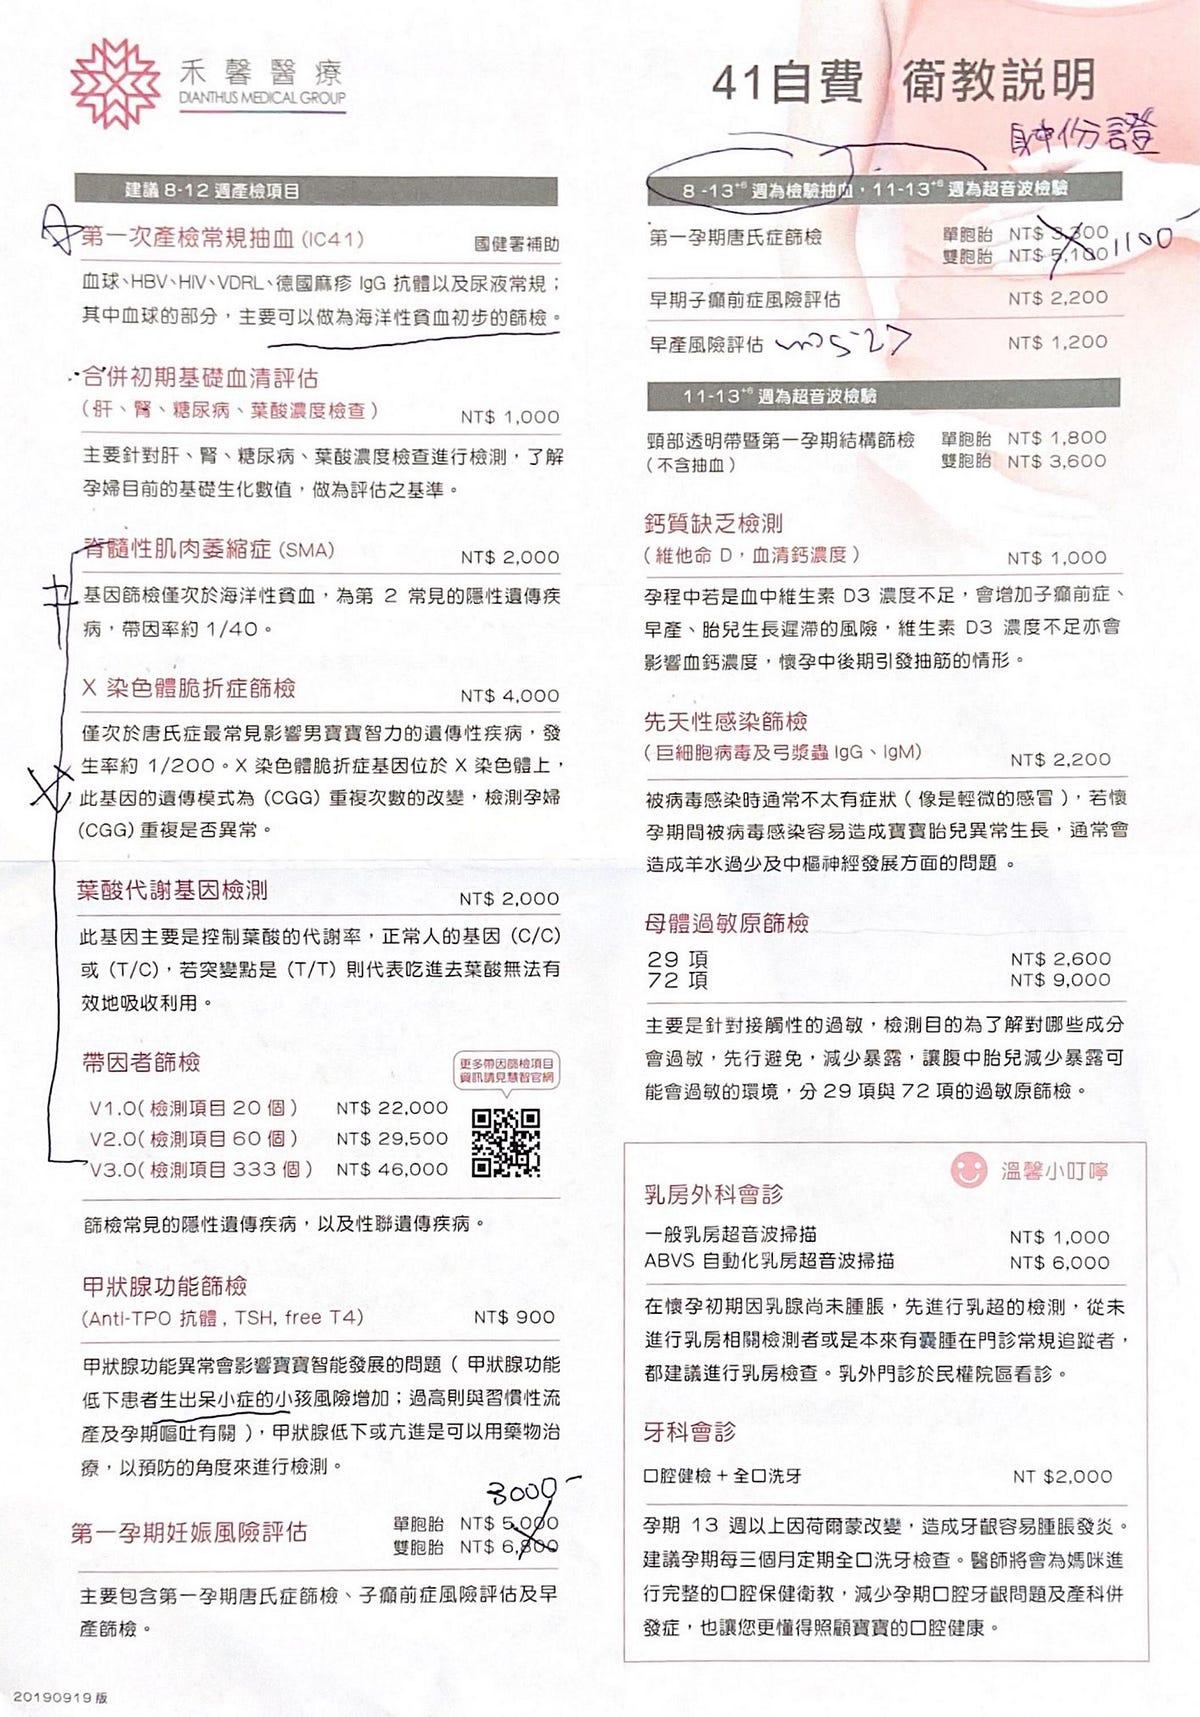 禾馨醫療
DIANTHUS MEDICAL GROUP
41自費 衛教説明
身份證
建議 8-12 週產檢項目
第一次產檢常規抽血 (IC41) 國健署補助
血球、HBV、HIV、VDRL、德國麻疹 IgG 抗體以及尿液常規；
其中血球的部分，主要可以做為海洋性貧血初步的篩檢。
合併初期基礎血清評估
（肝、腎、糖尿病、葉酸濃度檢查） NT$ 1,000
主要針對肝、腎、糖尿病、葉酸濃度檢查進行檢測，了解
孕婦目前的基礎生化數值，做為評估之基準。
脊髓性肌肉萎縮症 (SMA) NT$ 2,000
基因篩檢僅次於海洋性貧血，為第 2 常見的隱性遺傳疾
病，帶因率約 1/40。
X 染色體脆折症篩檢 NT$ 4,000
僅次於唐氏症最常見影響男寶寶智力的遺傳性疾病，發
生率約 1/200。X 染色體脆折症基因位於 X 染色體上，
此基因的遺傳模式為 (CGG) 重複次數的改變，檢測孕婦
(CGG) 重複是否異常。
葉酸代謝基因檢測 NT$ 2,000
此基因主要是控制葉酸的代謝率，正常人的基因 (C/C)
或 (T/C)，若突變點是 (T/T) 則代表吃進去葉酸無法有
效地吸收利用。
帶因者篩檢
更多帶因篩檢項目
資訊請見慧智官網
V1.0( 檢測項目 20 個 ) NT$ 22,000
V2.0( 檢測項目 60 個 ) NT$ 29,500
V3.0( 檢測項目 333 個 ) NT$ 46,000
篩檢常見的隱性遺傳疾病，以及性聯遺傳疾病。
甲狀腺功能篩檢
(Anti-TPO 抗體 , TSH, free T4) NT$ 900
甲狀腺功能異常會影響寶寶智能發展的問題（ 甲狀腺功能
低下患者生出呆小症的小孩風險增加；過高則與習慣性流
產及孕期嘔吐有關 ），甲狀腺低下或亢進是可以用藥物治
療，以預防的角度來進行檢測。
3000-
第一孕期妊娠風險評估 單胞胎 NT$ 5,000
雙胞胎 NT$ 6,800
主要包含第一孕期唐氏症篩檢、子癲前症風險評估及早
產篩檢。
20190919 版
8 -13⁺⁶ 週為檢驗抽血，11-13⁺⁶ 週為超音波檢驗
第一孕期唐氏症篩檢 單胞胎 NT$ 3,300
雙胞胎 NT$ 5,100
1100-
早期子癲前症風險評估 NT$ 2,200
早產風險評估 NT$ 1,200
11-13⁺⁶ 週為超音波檢驗
頸部透明帶暨第一孕期結構篩檢 單胞胎 NT$ 1,800
（不含抽血） 雙胞胎 NT$ 3,600
鈣質缺乏檢測
（維他命 D，血清鈣濃度） NT$ 1,000
孕程中若是血中維生素 D3 濃度不足，會增加子癲前症、
早產、胎兒生長遲滯的風險，維生素 D3 濃度不足亦會
影響血鈣濃度，懷孕中後期引發抽筋的情形。
先天性感染篩檢
（巨細胞病毒及弓漿蟲 IgG、IgM） NT$ 2,200
被病毒感染時通常不太有症狀（ 像是輕微的感冒 ），若懷
孕期間被病毒感染容易造成寶寶胎兒異常生長，通常會
造成羊水過少及中樞神經發展方面的問題 。
母體過敏原篩檢
29 項 NT$ 2,600
72 項 NT$ 9,000
主要是針對接觸性的過敏，檢測目的為了解對哪些成分
會過敏，先行避免，減少暴露，讓腹中胎兒減少暴露可
能會過敏的環境，分 29 項與 72 項的過敏原篩檢。
溫馨小叮嚀
乳房外科會診
一般乳房超音波掃描 NT$ 1,000
ABVS 自動化乳房超音波掃描 NT$ 6,000
在懷孕初期因乳腺尚未腫脹，先進行乳超的檢測，從未
進行乳房相關檢測者或是本來有囊腫在門診常規追蹤者，
都建議進行乳房檢查。乳外門診於民權院區看診。
牙科會診
口腔健檢 + 全口洗牙 NT $2,000
孕期 13 週以上因荷爾蒙改變，造成牙齦容易腫脹發炎。
建議孕期每三個月定期全口洗牙檢查。醫師將會為媽咪進
行完整的口腔保健衛教，減少孕期口腔牙齦問題及產科併
發症，也讓您更懂得照顧寶寶的口腔健康。